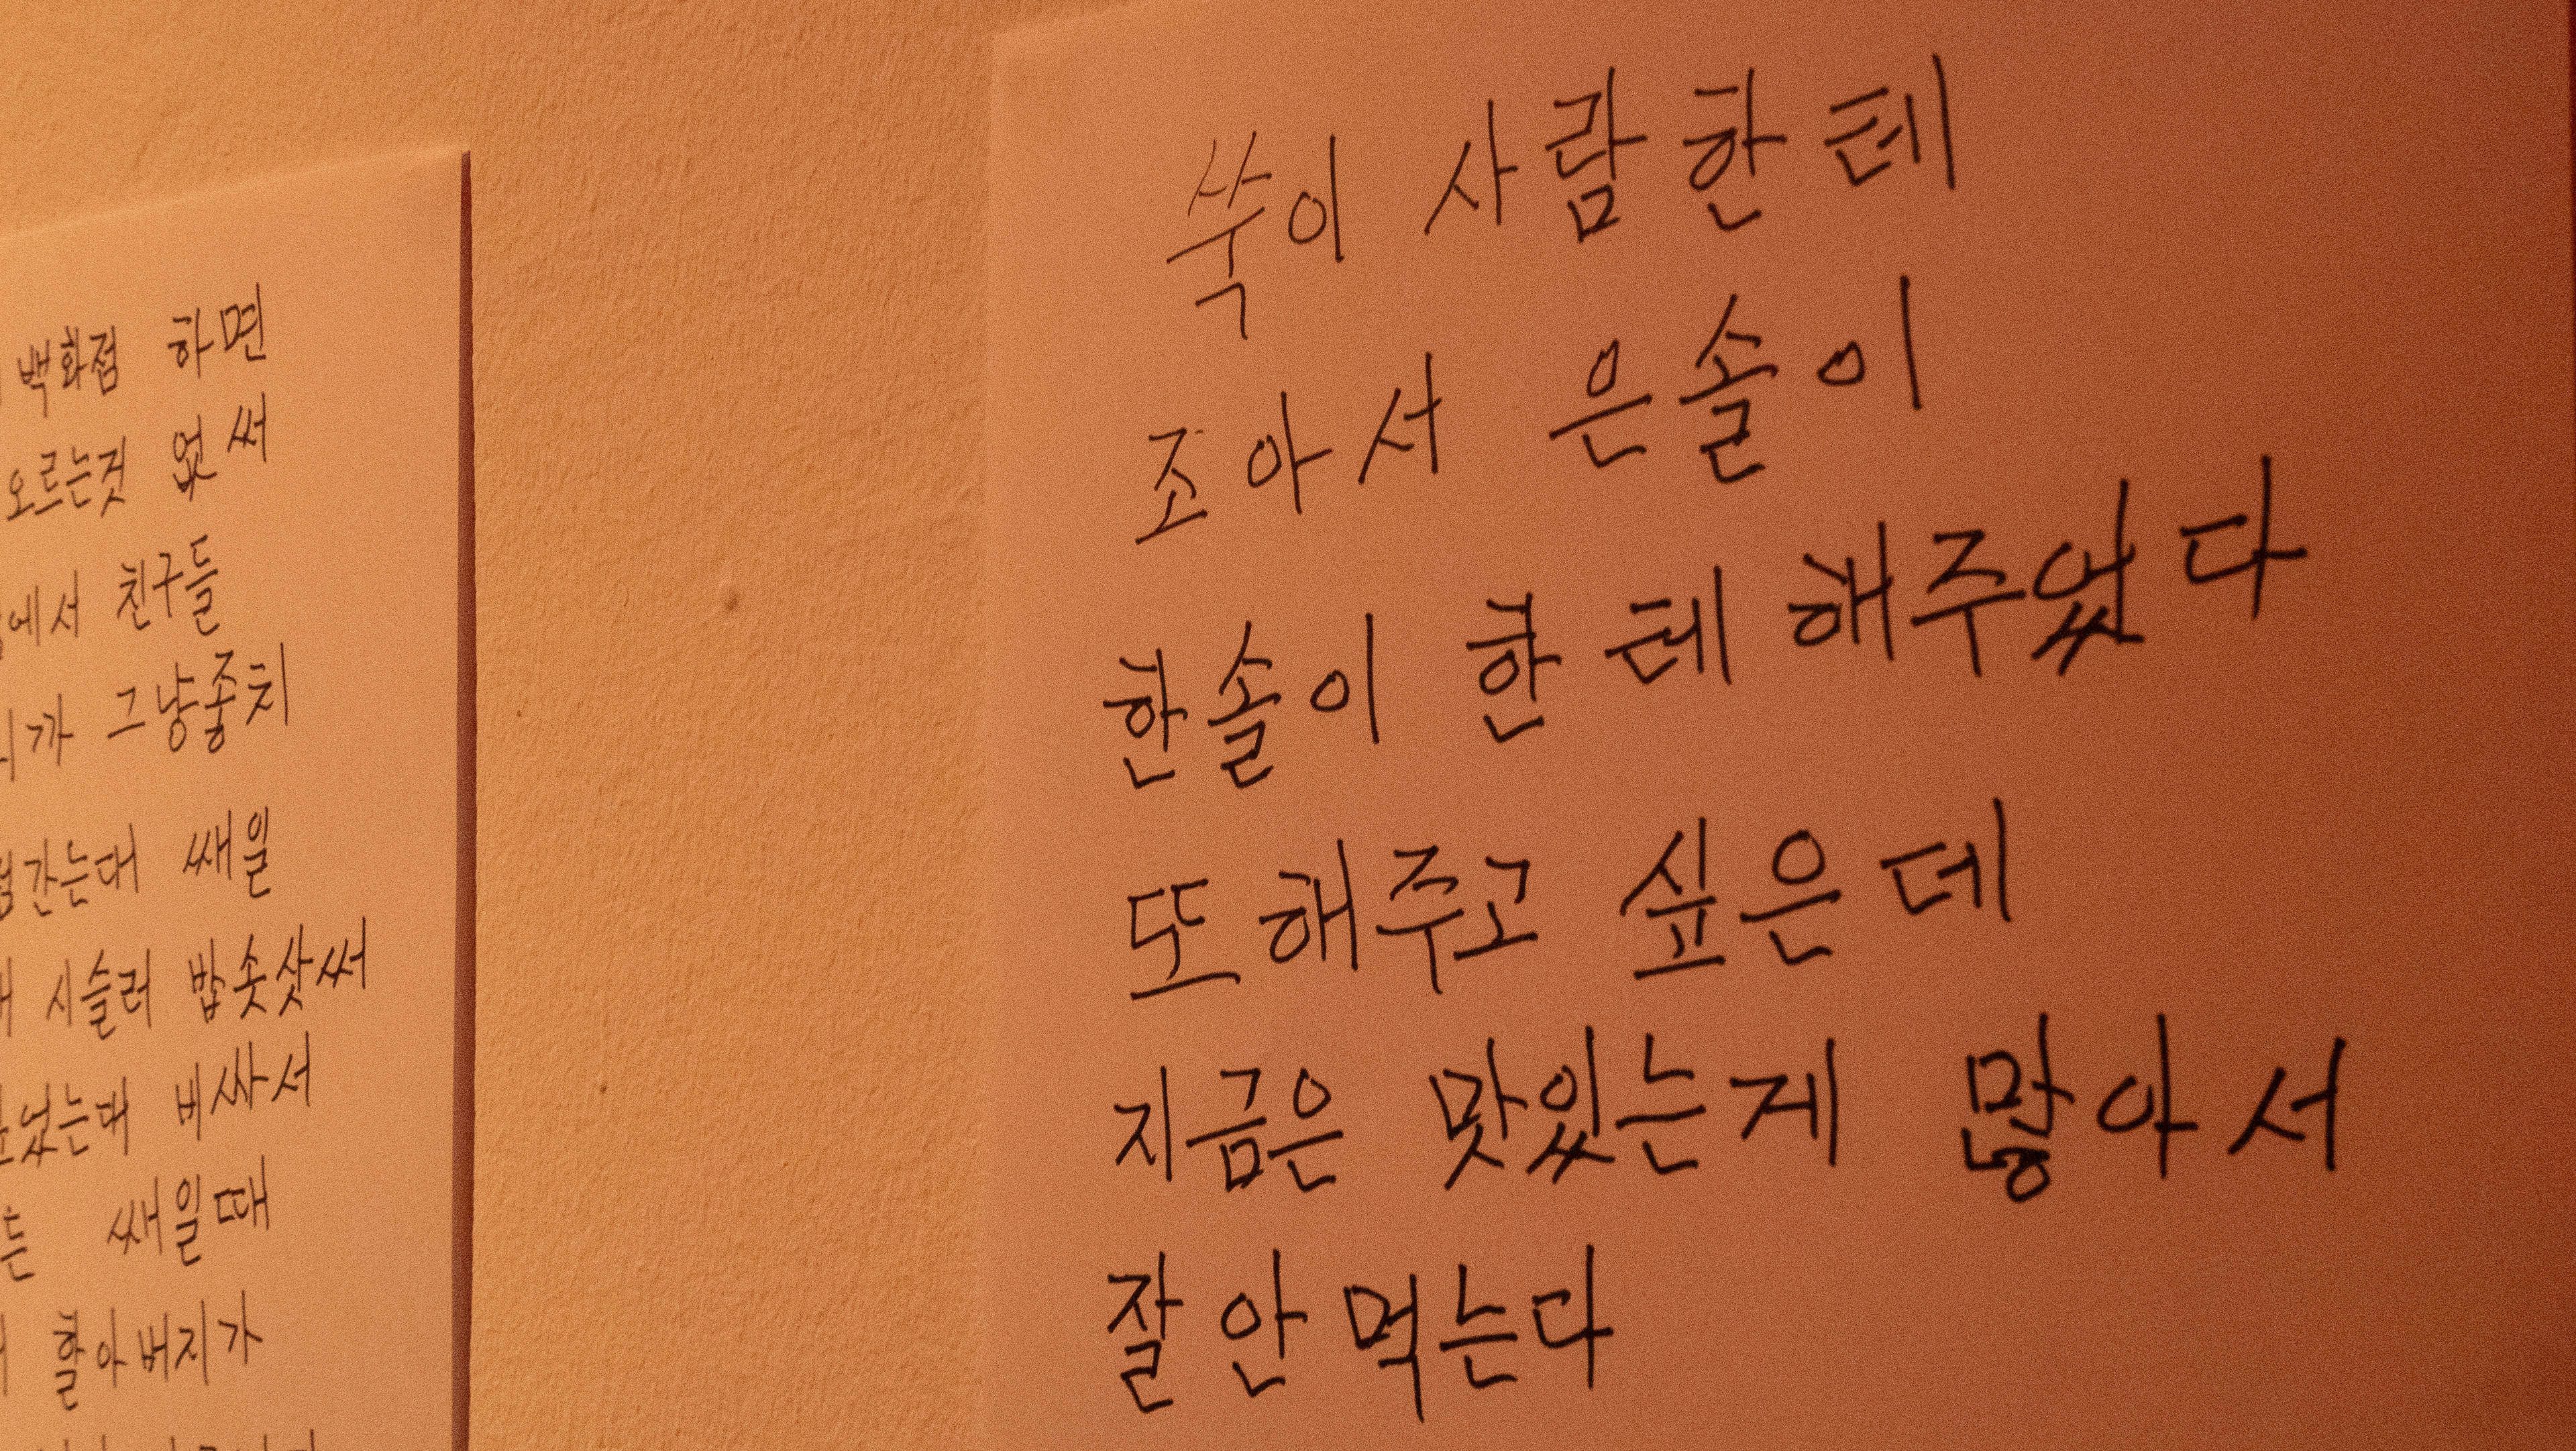 백화점 하면
오르는것 없써
에서 친구들
가 그냥좋치
간는대 쌔일
시슬러 밥솟샀써
었는대 비싸서
쌔일때
할아버지가
쑥이 사람한테
조아서 은솔이
한솔이 한테 해주었다
또해주고 싶은데
지금은 맛있는게 많아서
잘 안 먹는다